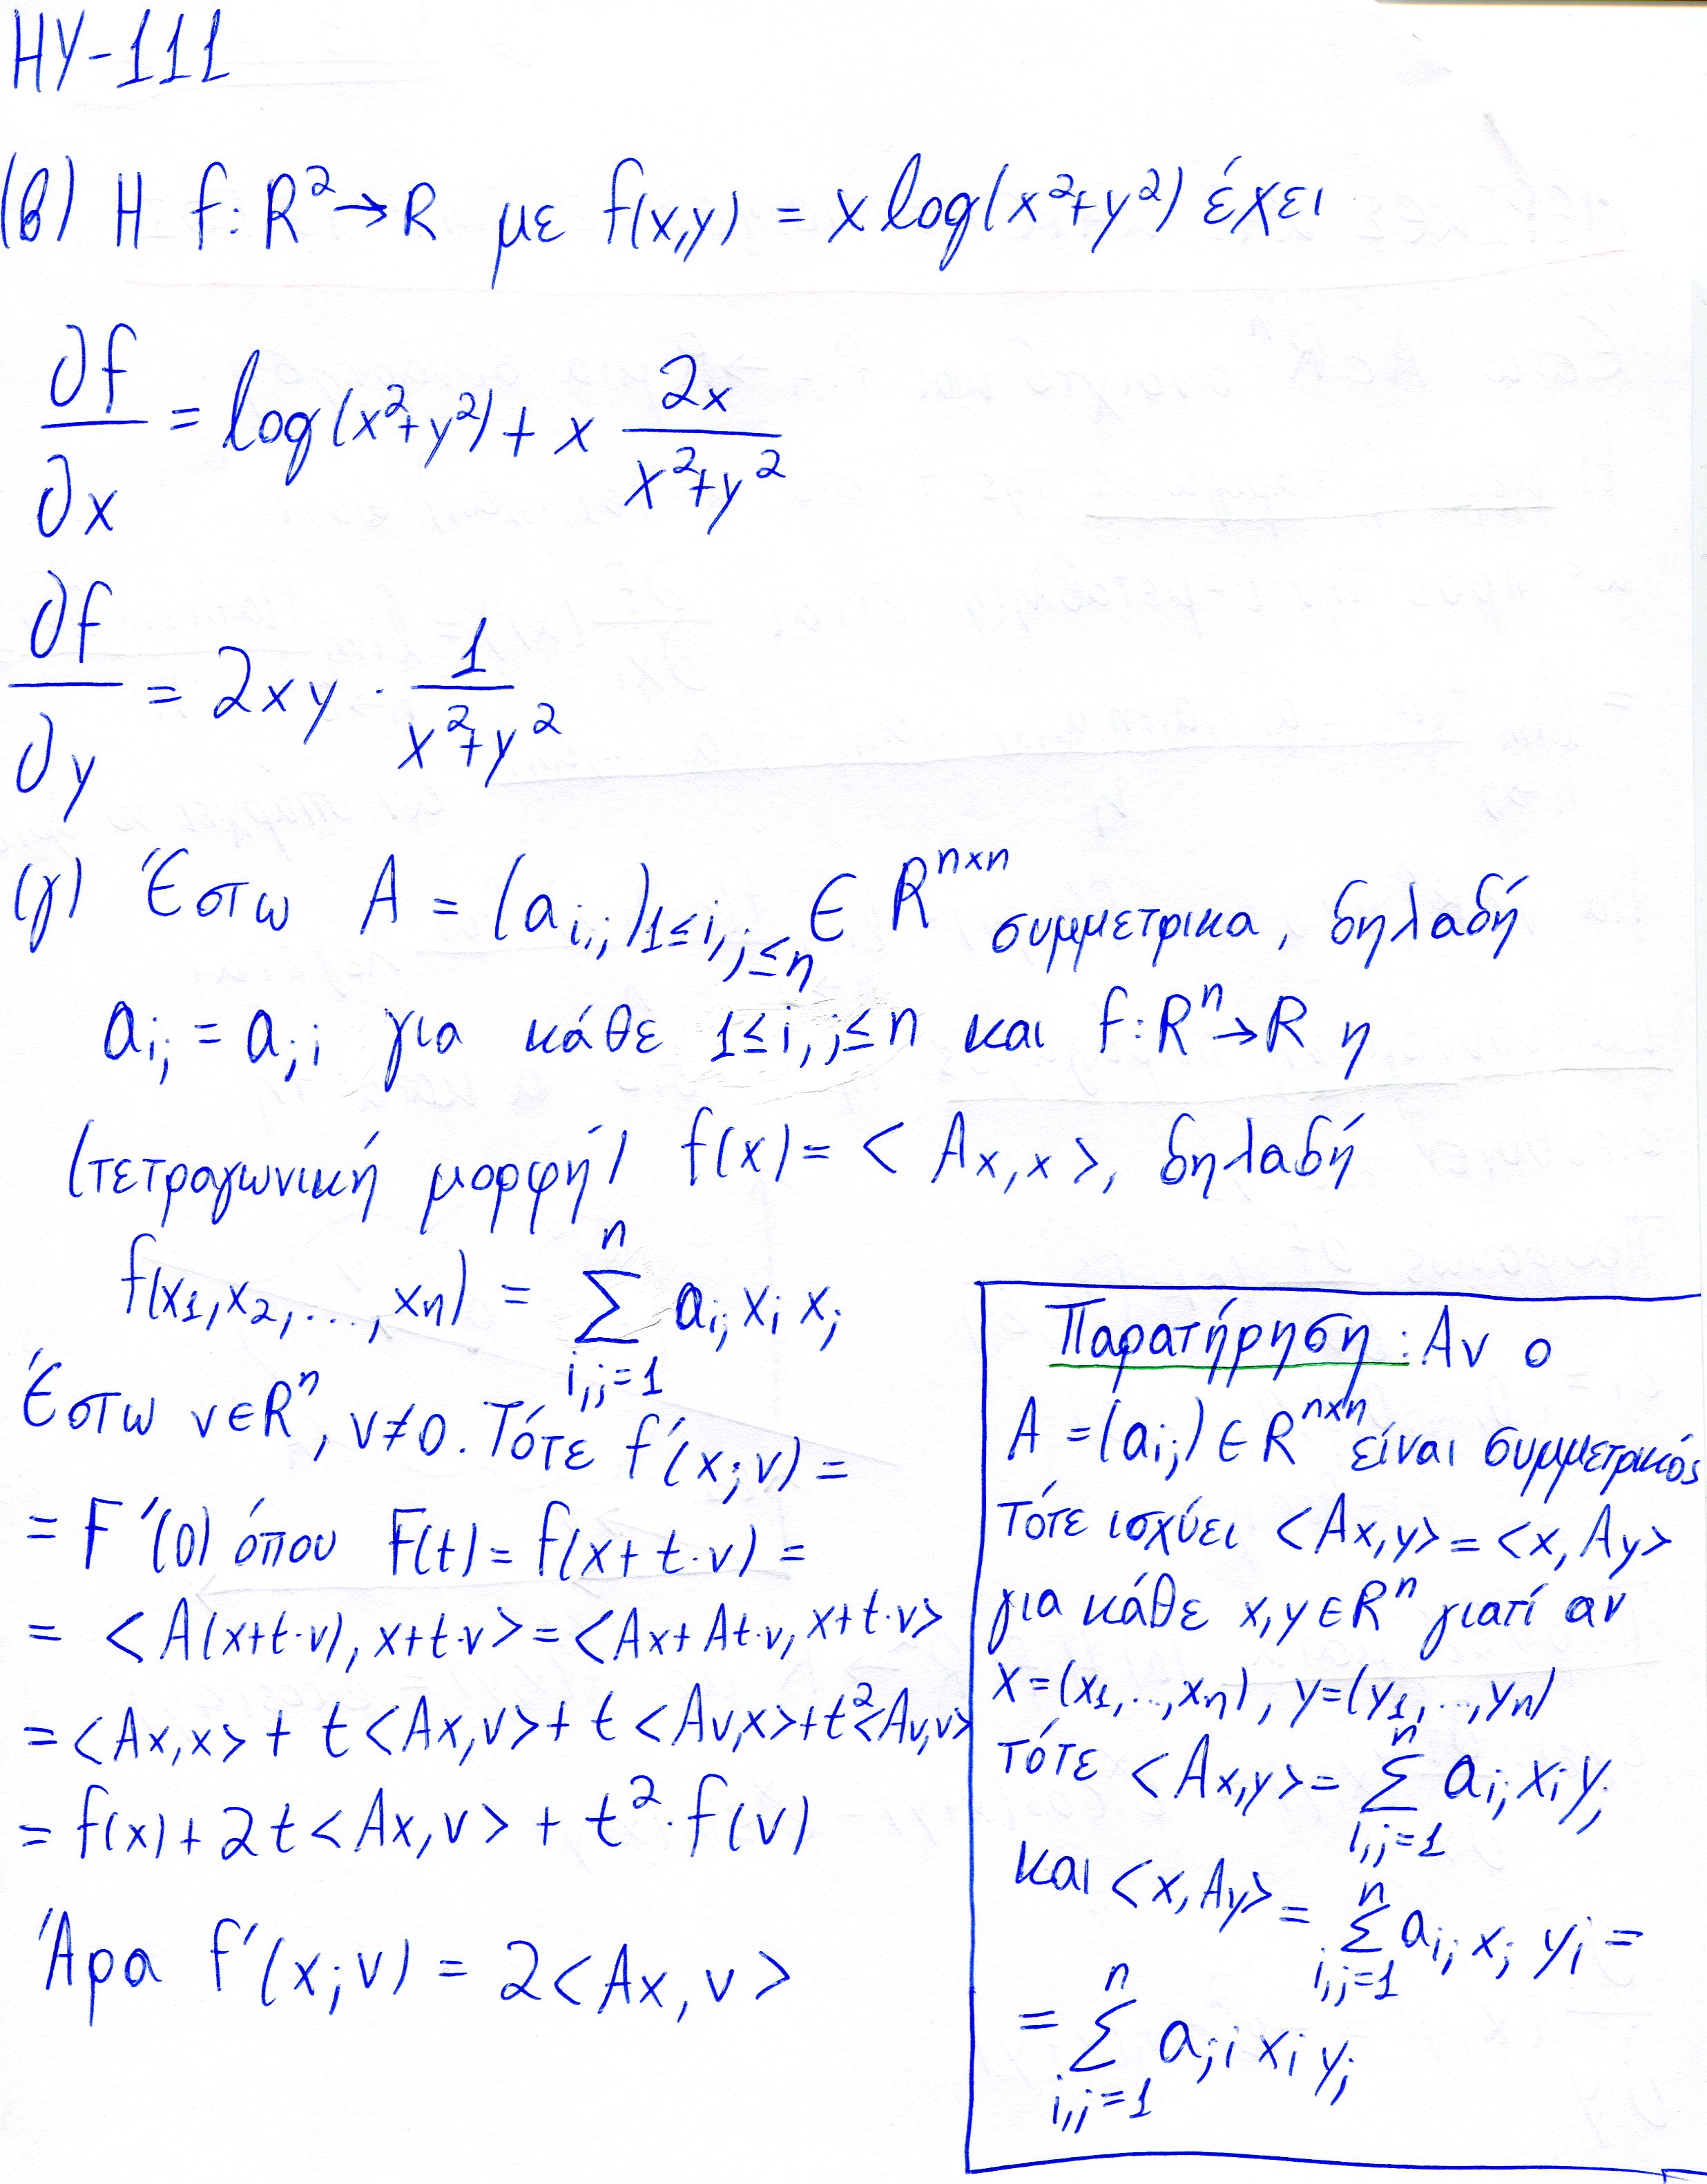 HY-111
(β) Η f: R² → R με f(x,y) = x log(x²+y²) έχει
∂f/∂x = log(x²+y²) + x 2x/(x²+y²)
∂f/∂y = 2xy · 1/(x²+y²)
(γ) Έστω A = (a_{i,j})_{1≤i,j≤n} ∈ R^{n×n} συμμετρικα, δηλαδή
a_{ij} = a_{ji} για κάθε 1≤i,j≤n και f: Rⁿ → R η
(τετραγωνική μορφή) f(x) = < Ax, x >, δηλαδή
f(x₁, x₂, ..., xₙ) = Σ_{i,j=1}^{n} a_{ij} x_i x_j
Έστω v ∈ Rⁿ, v ≠ 0. Τότε f'(x; v) =
= F'(0) όπου F(t) = f(x + t·v) =
= < A(x+t·v), x+t·v > = < Ax + At·v, x+t·v >
= <Ax,x> + t<Ax,v> + t<Av,x> + t²<Av,v>
= f(x) + 2t<Ax,v> + t²·f(v)
Άρα f'(x; v) = 2<Ax, v>
Παρατήρηση: Αν ο
A = (a_{ij}) ∈ R^{n×n} είναι συμμετρικός
τότε ισχύει <Ax,y> = <x,Ay>
για κάθε x,y ∈ Rⁿ γιατί αν
x = (x₁,..,xₙ), y = (y₁,..,yₙ)
τότε <Ax,y> = Σ_{i,j=1}^{n} a_{ij} x_i y_j
και <x,Ay> = Σ_{i,j=1}^{n} a_{ij} x_j y_i =
= Σ_{i,j=1}^{n} a_{ji} x_i y_j